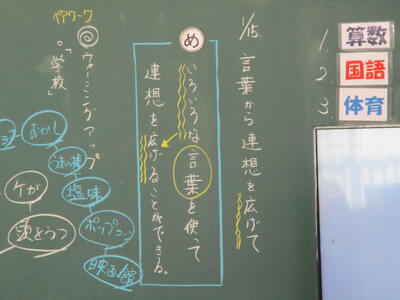 1. 算数
2. 国語
3. 体育
1/15 言葉から連想を広げて
め
いろいろな言葉を使って
連想を広げることができる。
ペアワーク
◎ウォーミングアップ
。「学校」
おかし
うまい棒
塩味
ポップコーン
映画館
ケガ
頭をうつ